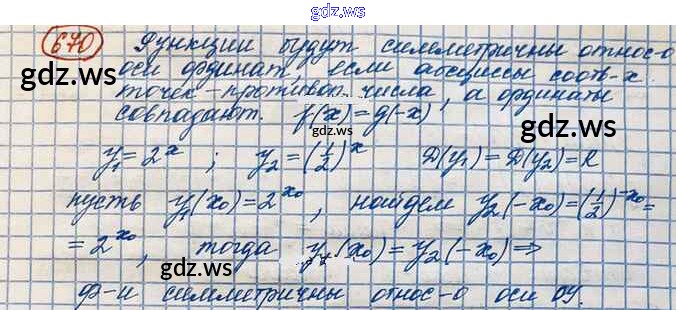 gdz.ws
670 Функции будут симметричны относ-о
оси ординат, если абсциссы соотв-х
точек - противоп. числа, а ординаты
gdz.ws
совпадают. f(x) = g(-x)
gdz.ws
y₁ = 2ˣ ; y₂ = (1/2)ˣ D(y₁) = D(y₂) = R
gdz.ws
пусть y₁(x₀) = 2^x₀, найдем y₂(-x₀) = (1/2)^-x₀ =
= 2^x₀, тогда y₁(x₀) = y₂(-x₀) ⇒
gdz.ws
gdz.ws
ф-и симметричны относ-о оси OY.
gdz.ws